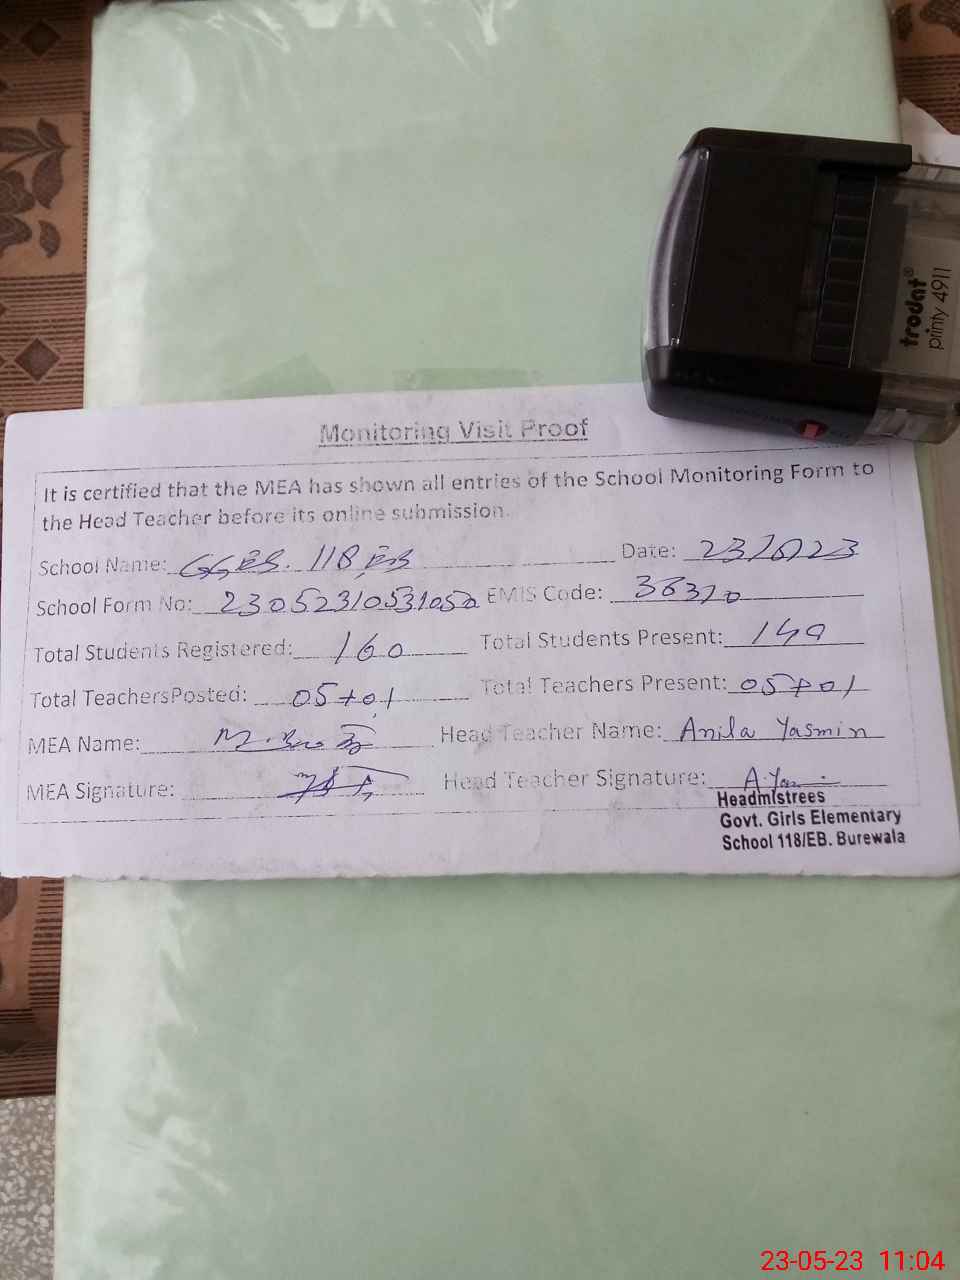 trodat®
printy 4911
Monitoring Visit Proof
It is certified that the MEA has shown all entries of the School Monitoring Form to
the Head Teacher before its online submission.
School Name: GGES. 118 EB Date: 23/5/23
School Form No: 23052310531050 EMIS Code:
Total Students Registered: 160 Total Students Present: 149
Total TeachersPosted: 05+01 Total Teachers Present: 05+01
MEA Name: Head Teacher Name: Anila Yasmin
MEA Signature: Head Teacher Signature:
Headmistrees
Govt. Girls Elementary
School 118/EB. Burewala
23-05-23 11:04